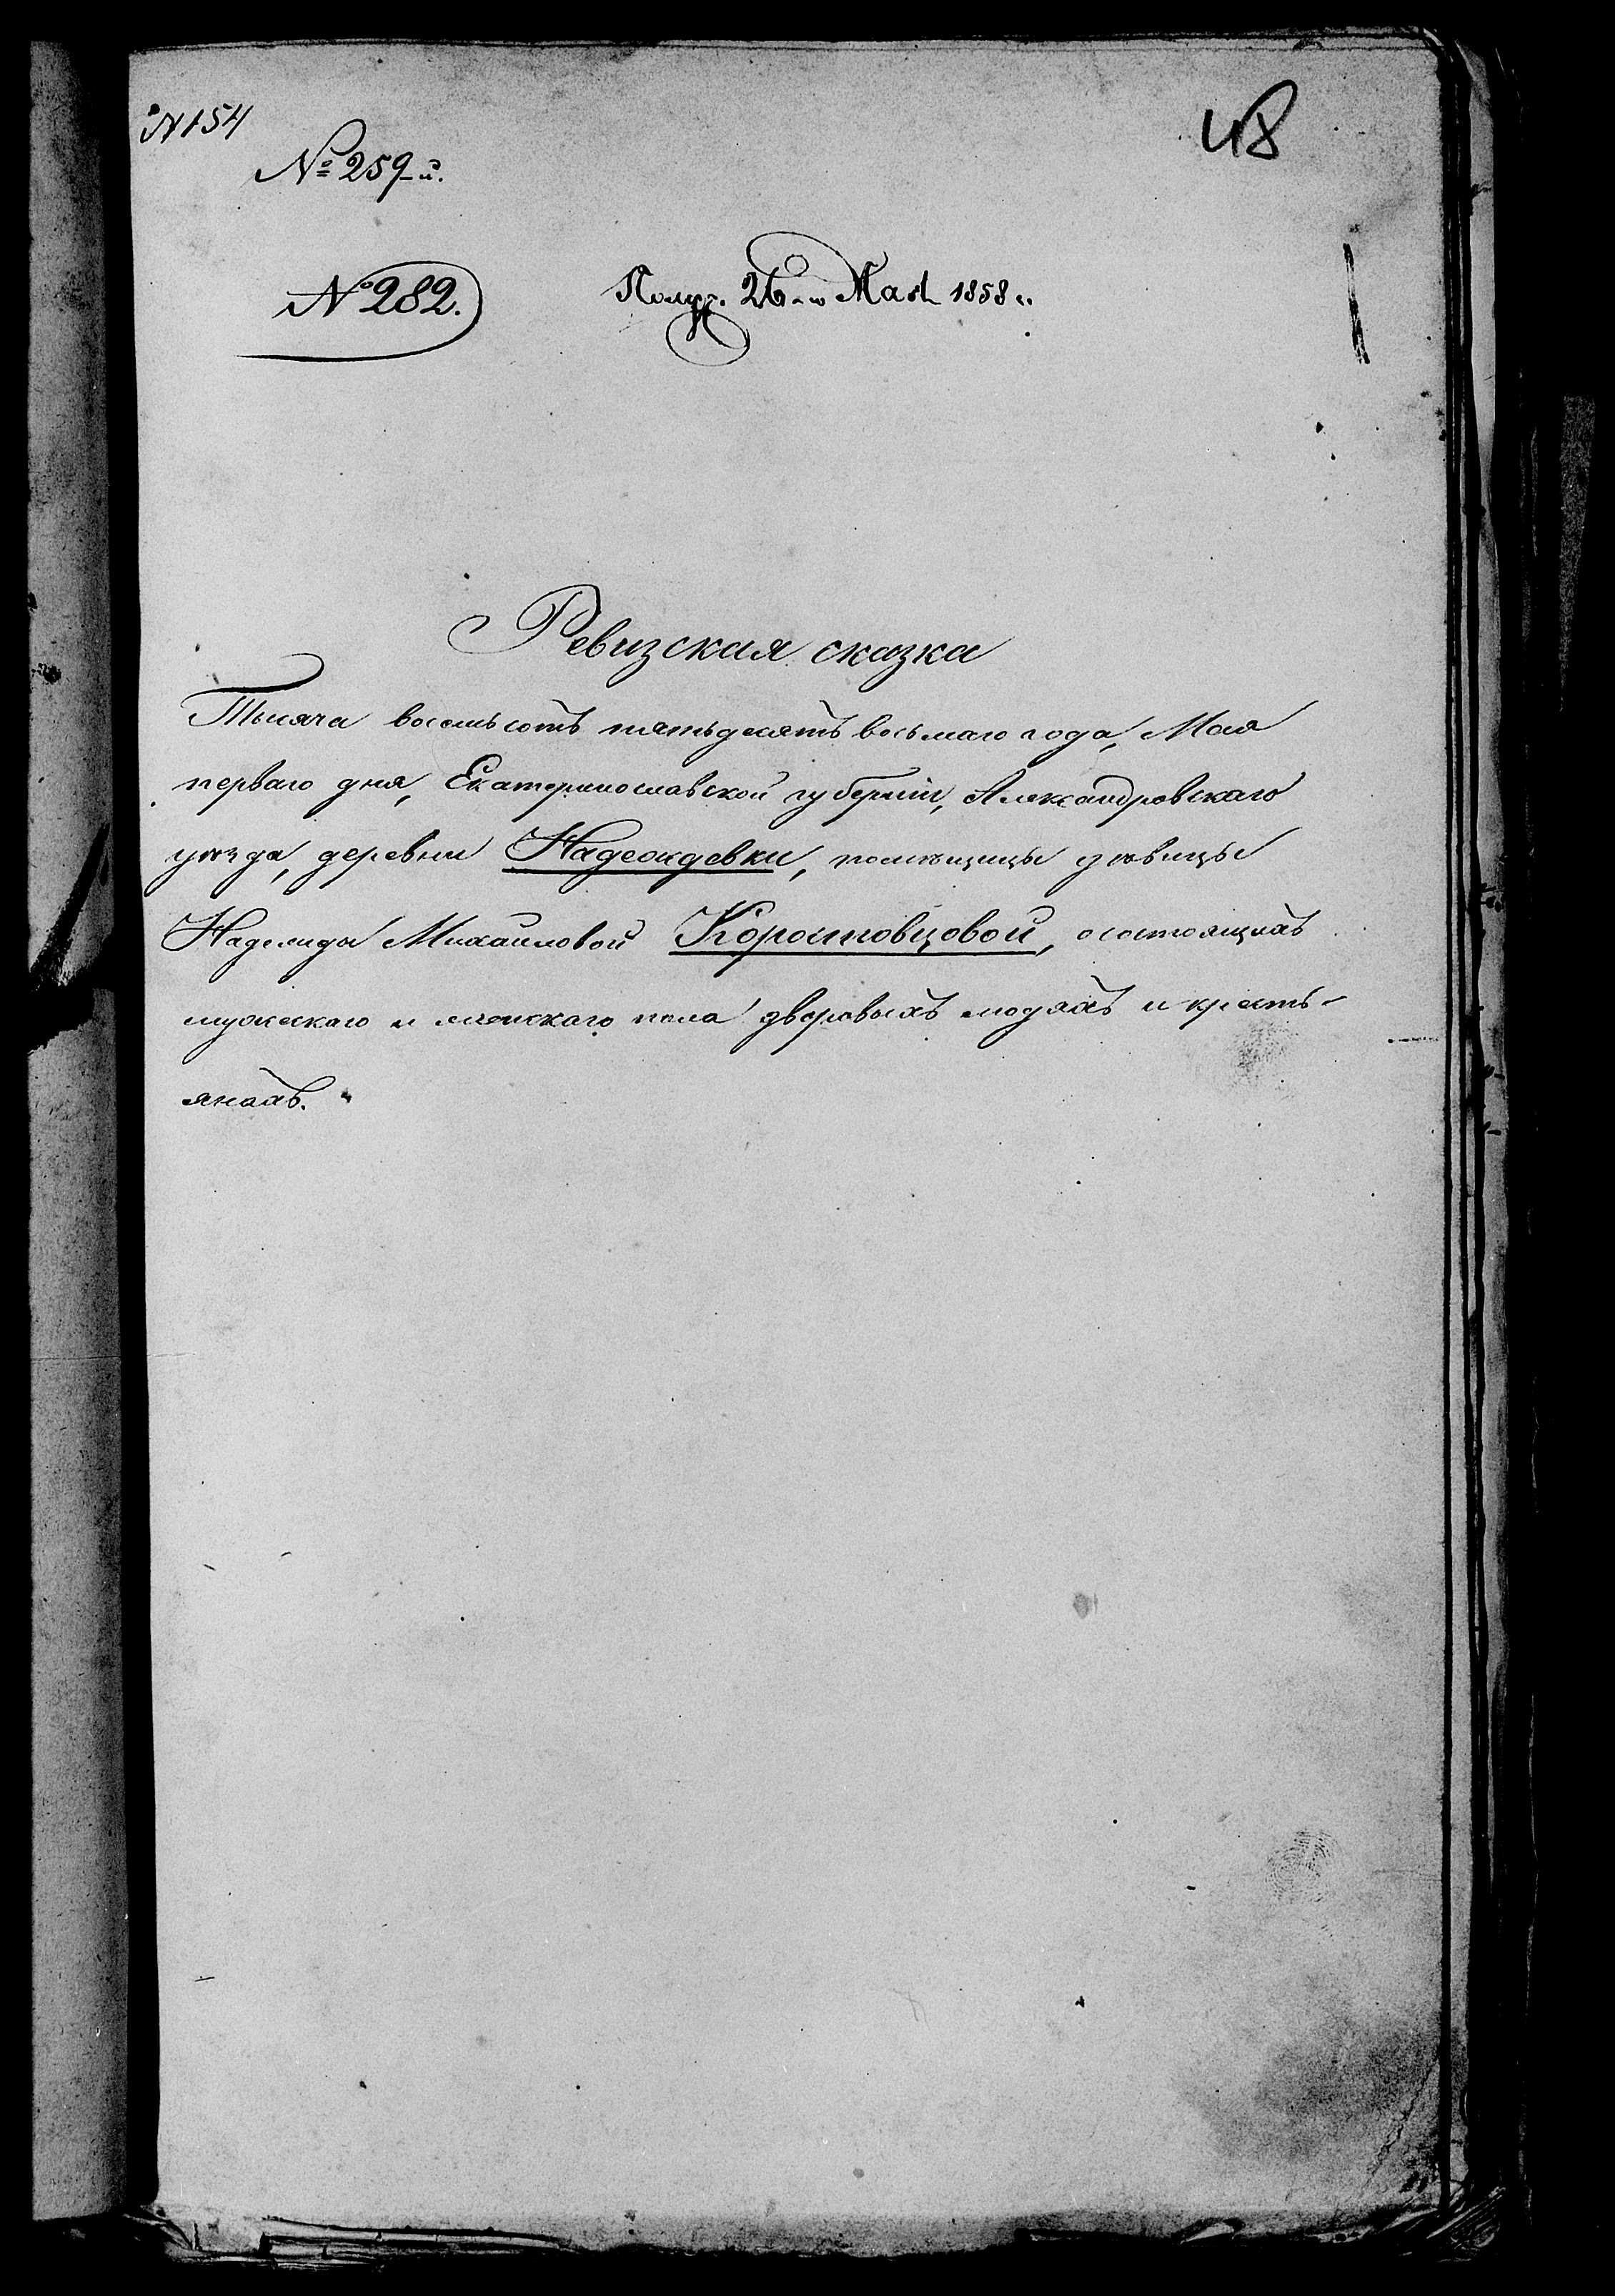 № 154
48
№ 259-й.
№ 282.
Получ. 26-го Мая 1858 г.
Ревизская сказка
Тысяча восемьсотъ пятьдесятъ восьмаго года, Мая
перваго дня, Екатеринославской губерніи, Александровскаго
уѣзда, деревни Надеождевки, помѣщицы дѣвицы
Надежды Михайловой Коростовцовой, о состоящихъ
мужескаго и женскаго пола дворовыхъ людяхъ и кресть-
янахъ.